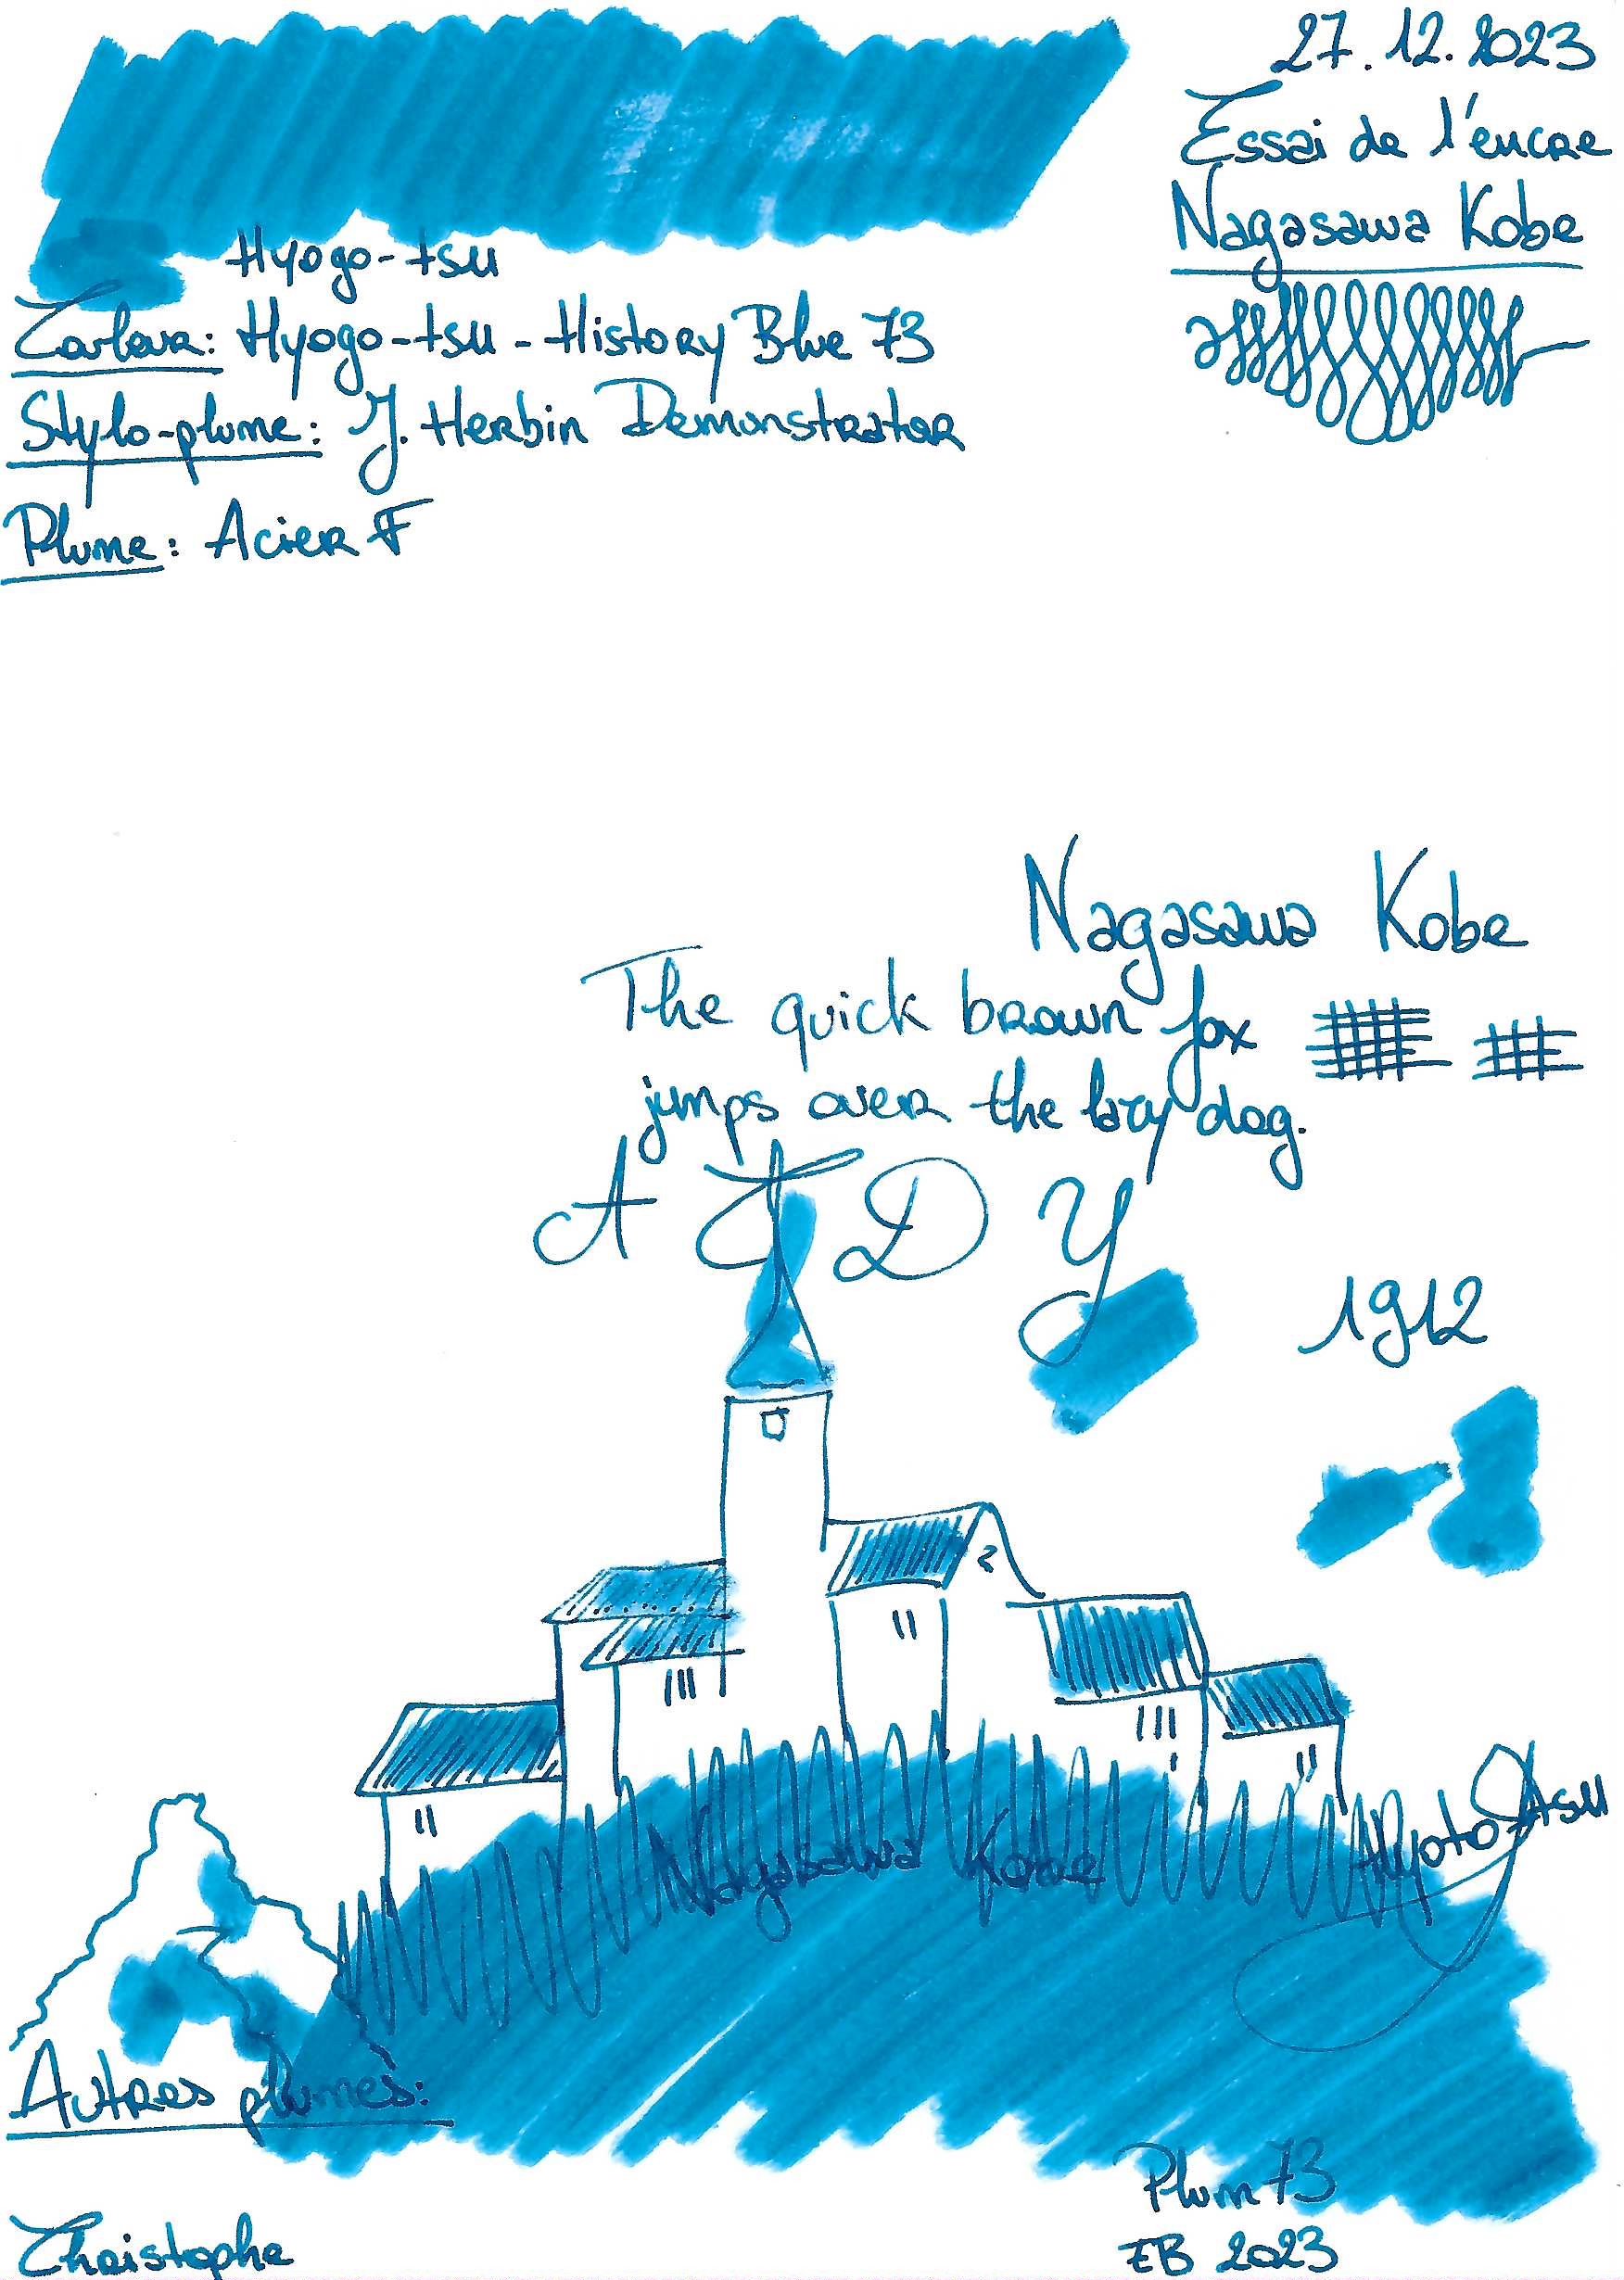 27.12.2023
Essai de l'encre
Nagasawa Kobe
Hyogo-tsu
Couleur: Hyogo-tsu - History Blue 73
Stylo-plume: J. Herbin Demonstrator
Plume: Acier F
Nagasawa Kobe
The quick brown fox
jumps over the lazy dog.
A F D Y
1912
Nagasawa Kobe
Hyoto-tsu
Autres plumes:
Plum 73
EB 2023
Christophe